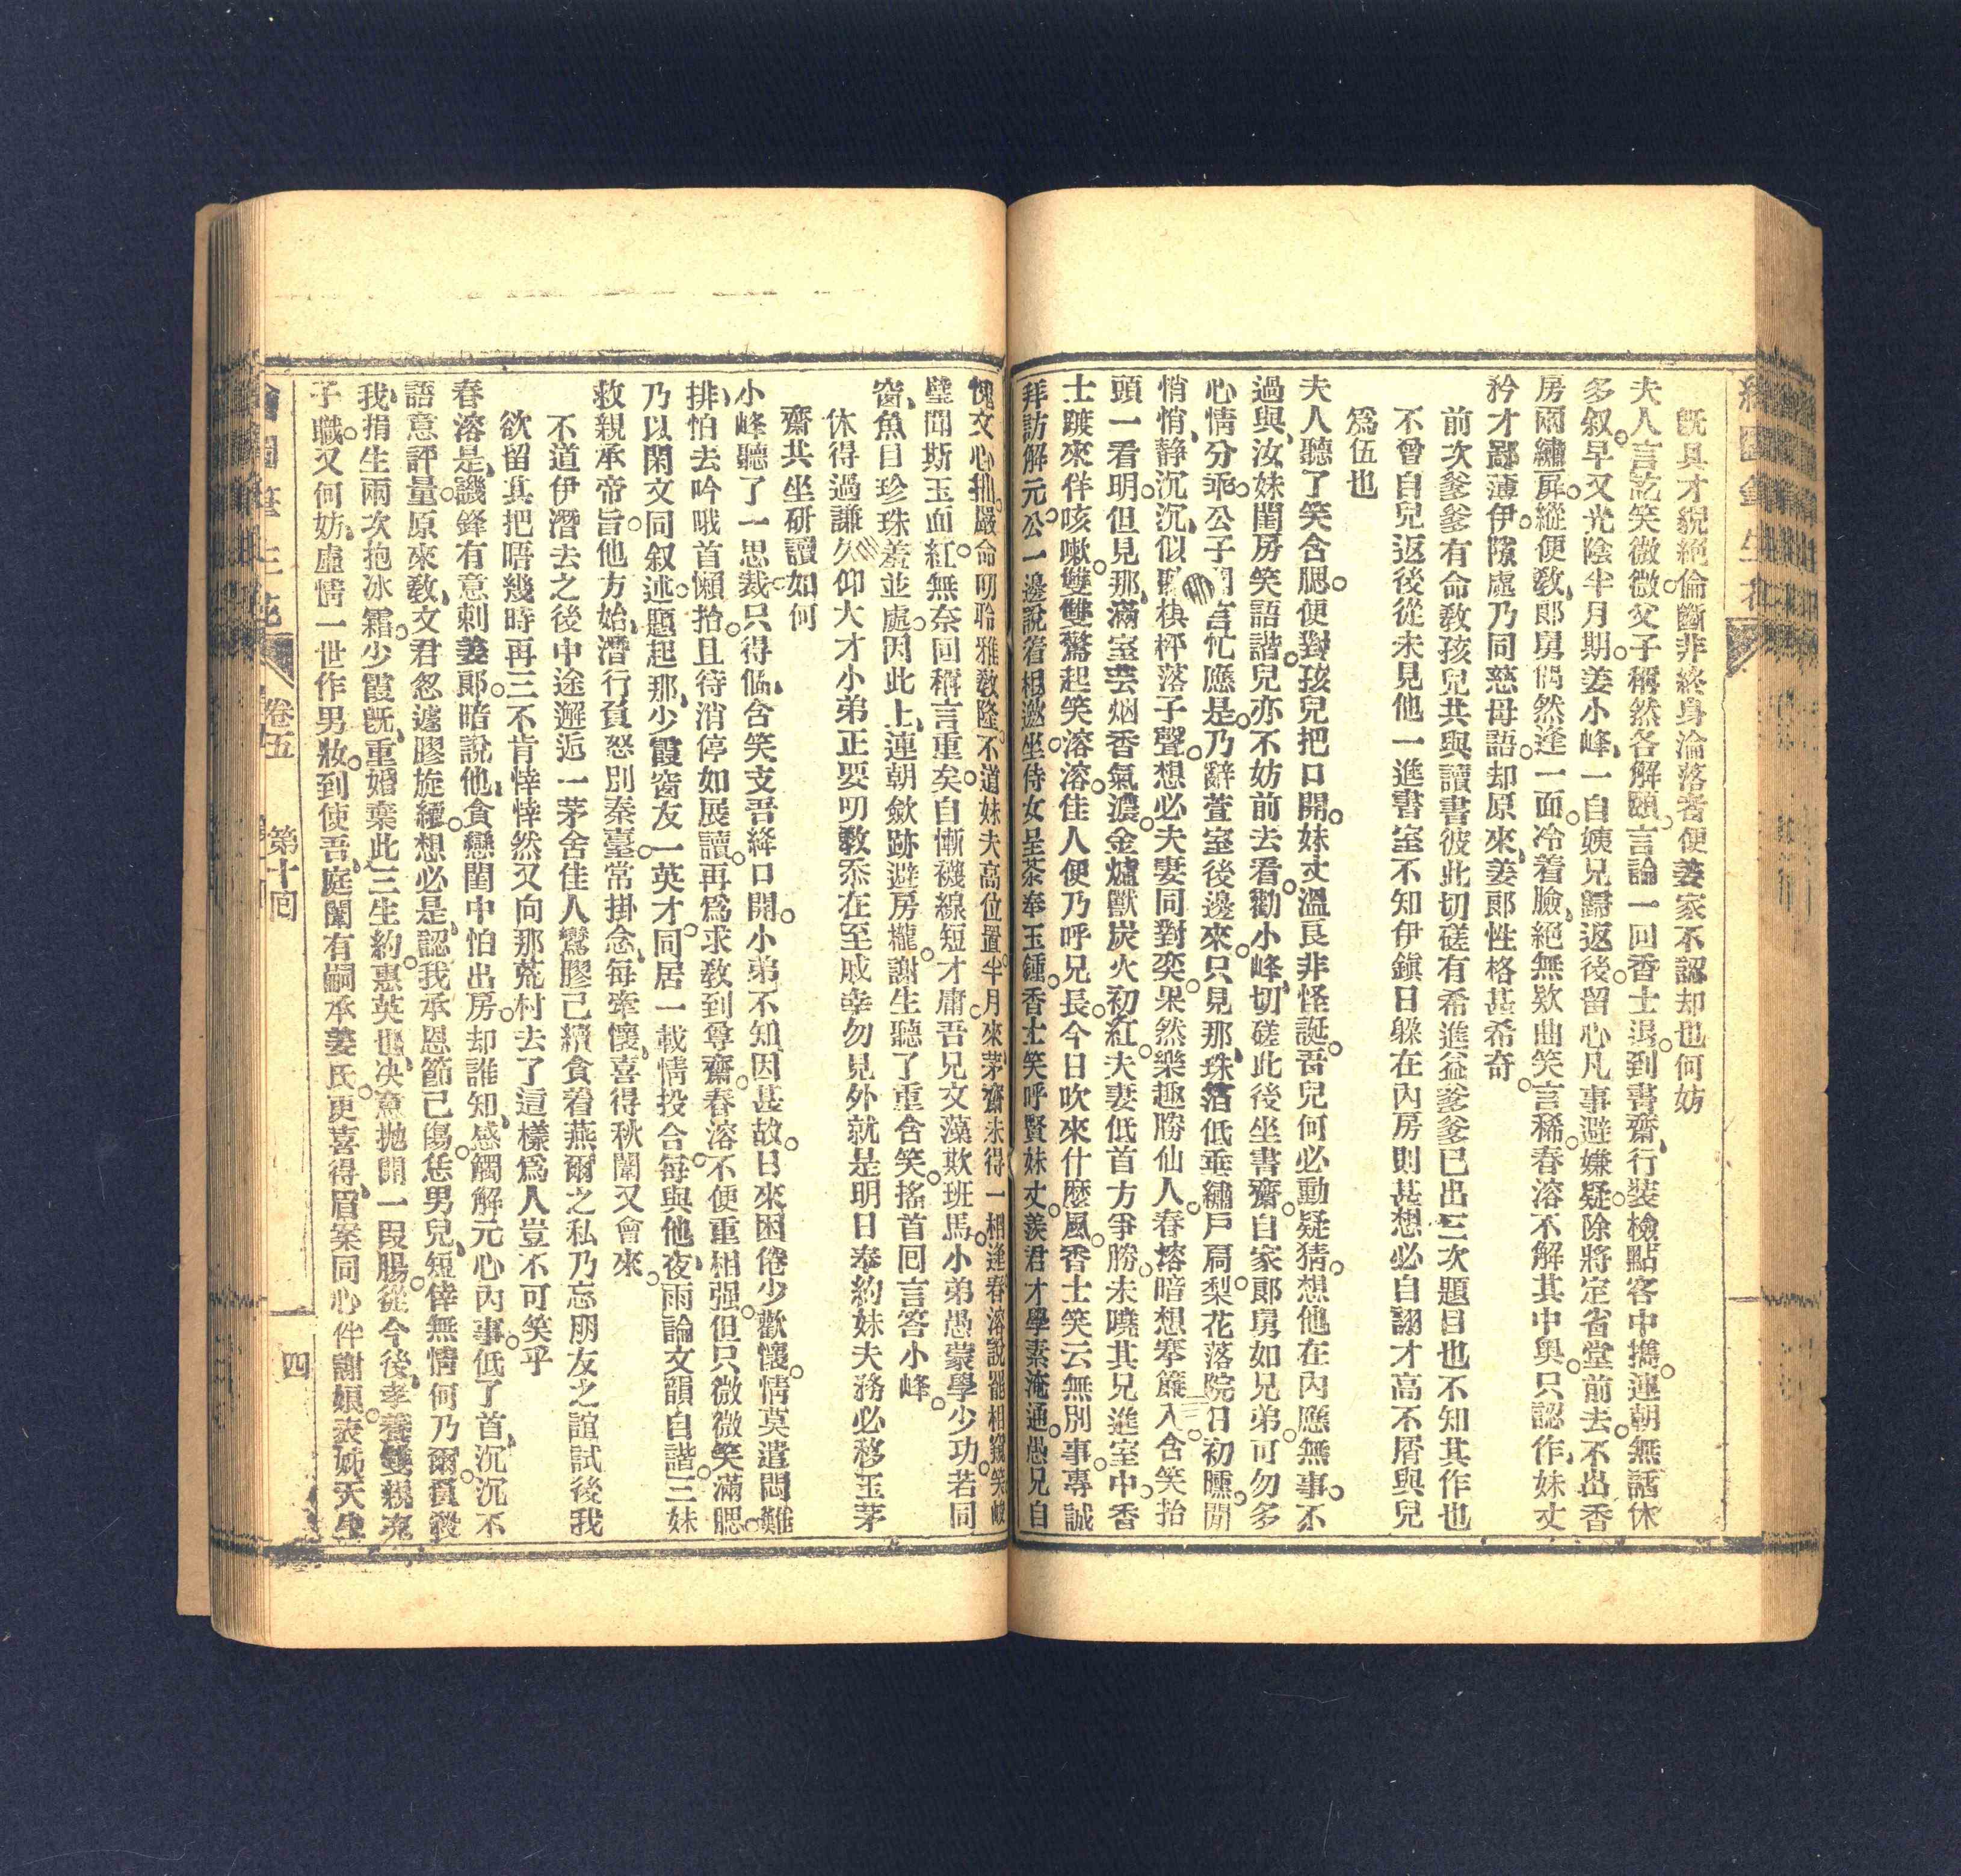 既具才貌絕倫斷非終身淪落者便姜家不認却也何妨
夫人言訖笑微微父子稱然各解頤言論一回香士退到書齋行裝檢點客中攜連朝無話休
多叙早又光陰半月期姜小峰一自姨兄歸返後留心凡事避嫌疑除將定省堂前去不出香
房兩繡屏縱便敎郎舅偶然逢一面冷着臉絕無欵曲笑言稀春溶不解其中奧只認作妹丈
矜才鄙薄伊隙處乃同慈母語却原來姜郎性格甚希奇
前次爹爹有命敎孩兒共與讀書彼此切磋有希進益爹爹已出三次題目也不知其作也
不曾自兒返後從未見他一進書室不知伊鎭日躱在內房則甚想必自詡才高不屑與兒
爲伍也
夫人聽了笑含腮便對孩兒把口開妹丈溫良非怪誕吾兒何必動疑猜想他在內應無事不
過與汝妹閨房笑語諧兒亦不妨前去看勸小峰切磋此後坐書齋自家郎舅如兄弟可勿多
心情分乖公子聞言忙應是乃辭萱室後邊來只見那珠箔低垂繡戶扃梨花落院日初曛閒
悄悄靜沉沉似聽棋枰落子聲想必夫妻同對奕果然樂趣勝仙人春溶暗想搴簾入含笑抬
頭一看明但見那滿室芸烟香氣濃金爐獸炭火初紅夫妻低首方爭勝未曉其兄進室中香
士踱來佯咳嗽雙雙驚起笑溶溶佳人便乃呼兄長今日吹來什麼風香士笑云無別事專誠
拜訪解元公一邊說着相邀坐侍女呈茶奉玉鍾香士笑呼賢妹丈羨君才學素淹通愚兄自
愧文心拙嚴命叨聆雅敎隆不道妹夫高位置半月來茅齋未得一相逢春溶說罷相窺笑峻
璧聞斯玉面紅無奈回稱言重矣自慚襪線短才庸吾兄文藻欺班馬小弟愚蒙學少功若同
窗魚目珍珠羞並處因此上連朝歛跡避房櫳謝生聽了重含笑搖首回言答小峰
休得過謙久仰大才小弟正要叨敎忝在至戚幸勿見外就是明日奉約妹夫務必移玉茅
齋共坐研讀如何
小峰聽了一思裁只得佯含笑支吾絳口開小弟不知因甚故日來困倦少歡懷情莫遣悶難
排怕去吟哦首懶抬且待消停如展讀再爲求敎到尊齋春溶不便重相强但只微微笑滿腮
乃以閑文同叙述題起那少霞窗友一英才同居一載情投合每與他夜雨論文韻自諧三妹
救親承帝旨他方始潛行負怒別秦臺常掛念每牽懷喜得秋闈又會來
不道伊潛去之後中途邂逅一茅舍佳人鸞膠已續貪着燕爾之私乃忘朋友之誼試後我
欲留其把晤幾時再三不肯悻悻然又向那荒村去了這樣爲人豈不可笑乎
春溶是譏鋒有意刺姜郎暗說他貪戀閨中怕出房却誰知感觸解元心內事低了首沉沉不
語意評量原來敎文君忽遽膠旋續想必是認我承恩節已傷恁男兒短倖無情何乃爾負殺
我捐生兩次抱冰霜少霞旣重婚棄此三生約惠英也決意抛開一段腸從今後孝養雙親充
子職又何妨虛情一世作男妝到使吾庭闈有嗣承姜氏更喜得眉案同心伴謝娘表姊天生
卷五
第十回
四